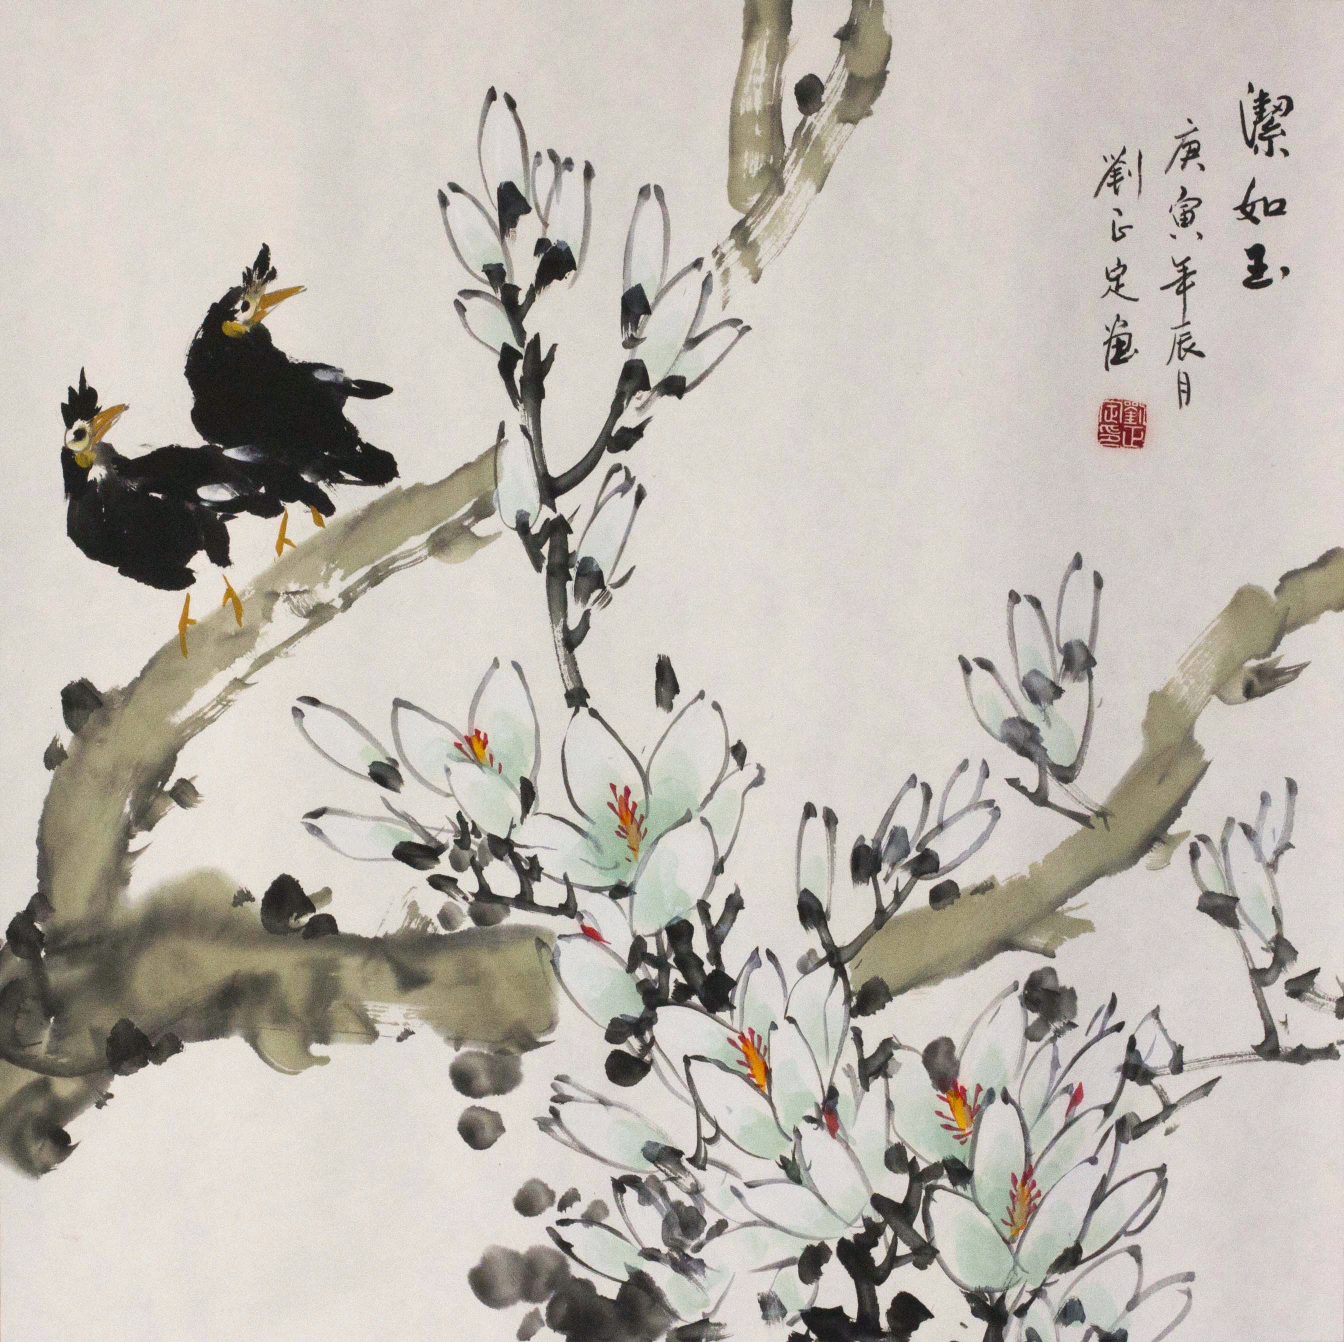 潔如玉
庚寅年辰月
劉正定畫
劉正定印